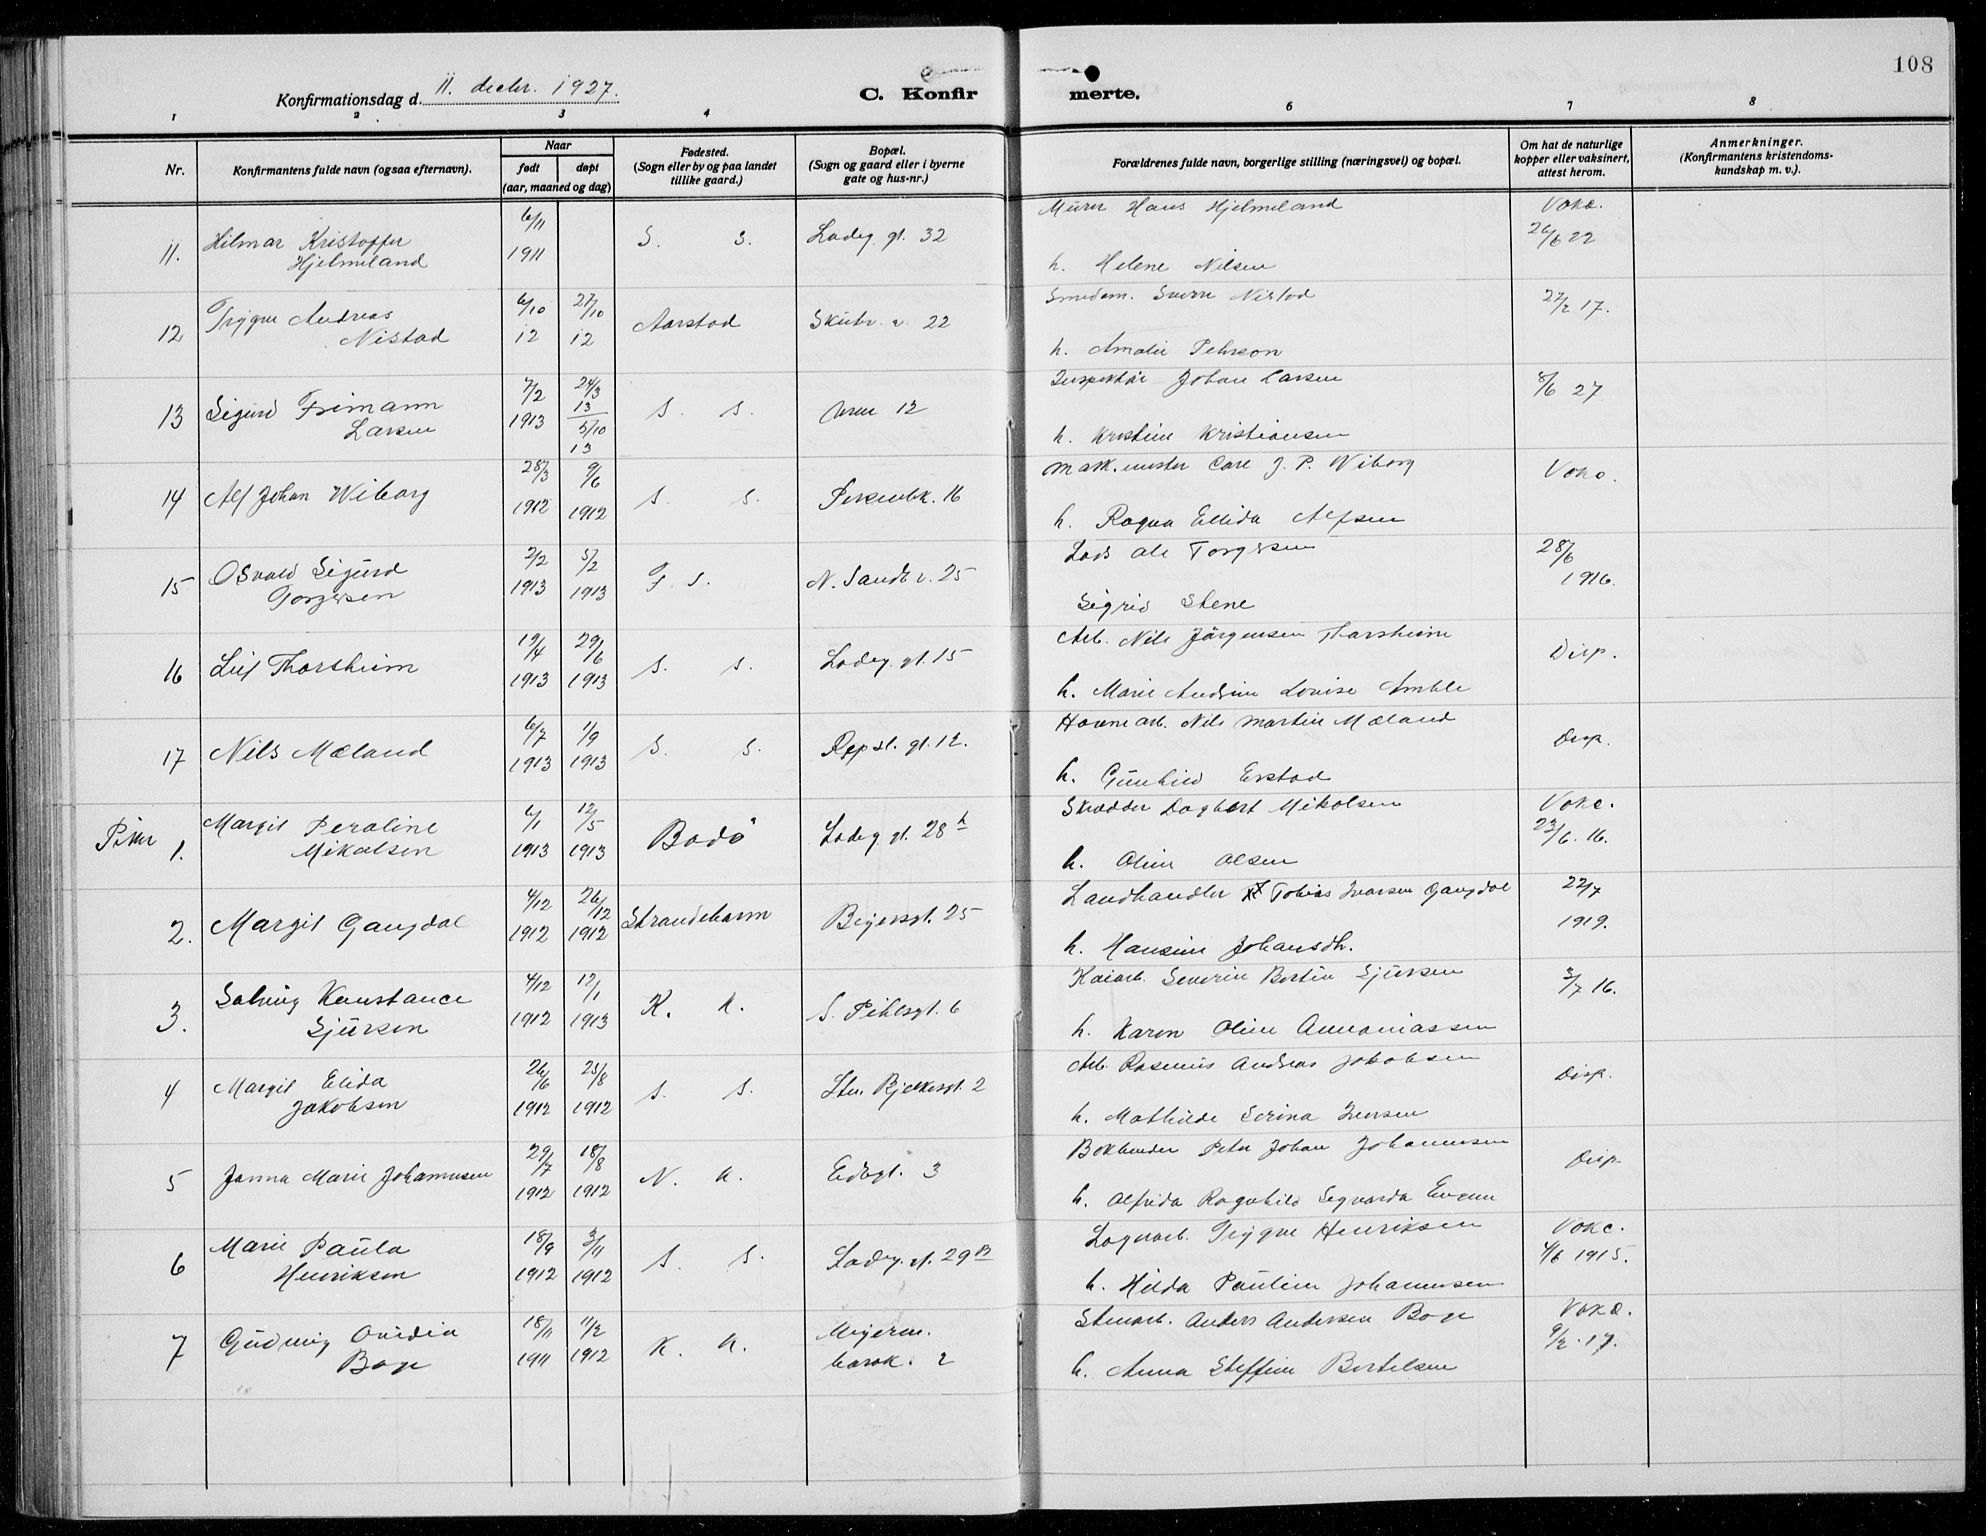 108
Konfirmationsdag d. 11. decbr. 1927.
C. Konfir merte.
1 2 3 4 6 7 8
Nr.
Konfirmantens fulde navn (ogsaa efternavn).
Naar
født døpt
(aar, maaned og dag)
Fødested.
(Sogn eller by og paa landet
tillike gaard.)
Bopæl.
(Sogn og gaard eller i byerne
gate og hus-nr.)
Forældrenes fulde navn, borgerlige stilling (næringsvei) og bopæl.
Om hat de naturlige
kopper eller vaksinert,
attest herom.
Anmerkninger.
(Konfirmantens kristendoms-
kundskap m. v.).
6/11 Murer Hans Hjelmeland Vakc.
11. Hilmar Kristoffer S. S. Ladeg. gt. 32 26/6 22
Hjelmeland 1911 h. Helene Nilsen
6/10 27/10 Smedem. Sverre Nistad 27/2 17.
12 Trygve Andreas Aarstad 22
Nistad 12 12 h. Amalie
7/2 24/3 Inspektør Johan Larsen 8/6 27
13 Sigurd Frimann 1913 13 S. S. 12
Larsen 5/10 13 h. Kristine Kristiansen
28/3 9/6 Mask.mester Carl J. P. Wiborg Vakc.
14 Alf Johan Wiborg 1912 1912 S. S. 16
h. Ragna Elida Alfsen
2/2 5/2 Lods Ole Torgersen 28/6 1916.
15 Osvald Sigurd 1913 1913 F. S. N. Sandbv. 25
Torgersen Sigrid Stene
19/4 29/6 Arb. Nils Jørgensen Thorsheim Disp.
16 Leif Thorsheim 1913 1913 S. S. Ladeg. gt. 15
h. Marie Andrine Lovise Amble
6/7 1/9 Havnearb. Nils Martin Mæland Disp.
17 Nils Mæland 1913 1913 S. S. Repsl. gt. 12.
h. Gunhild Erstad
Piker 6/1 12/5 Skrædder Dagbert Mikalsen Vakc.
1. Margit Peraline Bodø Ladeg. gt. 28 b 23/6. 16.
Mikalsen 1913 1913 h. Oline Olsen
4/12 26/12 Landhandler Tobias Ivarsen Gangdal 22/7
2. Margit Gangdal 1912 1912 Strandebarm Beyersgt. 25 1919.
h. Hansine Johansdtr.
4/12 12/1 Kaiarb. Severin Bertin Sjursen 3/7 16.
3. Solveig Konstance 1912 1913 K. K. S. Pihlsgt. 6
Sjursen h. Karen Oline Annaniassen
26/6 25/8 Arb. Rasmus Andreas Jakobsen Disp.
4 Margit Elida S. S. Sten Bjelkesgt. 2
Jakobsen 1912 1912 h. Mathilde Serina Iversen
29/7 18/8 Bokbinder Peter Johan Johannesen Disp.
5 Janna Marie Johannesen 1912 1912 N. K. Edbgt. 3
h. Alfrida Ragnhild Segvarda
18/9 3/11 Lagerarb. Trygve Henriksen Vakc.
6 Marie Paula S. S. Ladeg. gt. 29 B 4/6 1915.
Henriksen 1912 1912 h. Hilda Pauline Johannesen
18/11 11/2 Stenarb. Anders Andersen Boge Vakc.
7 Gudveig Ovidia K. K. Meyerm. 9/2. 17.
Boge 1911 1912 barak. 2 h. Anna Steffine Bertelsen